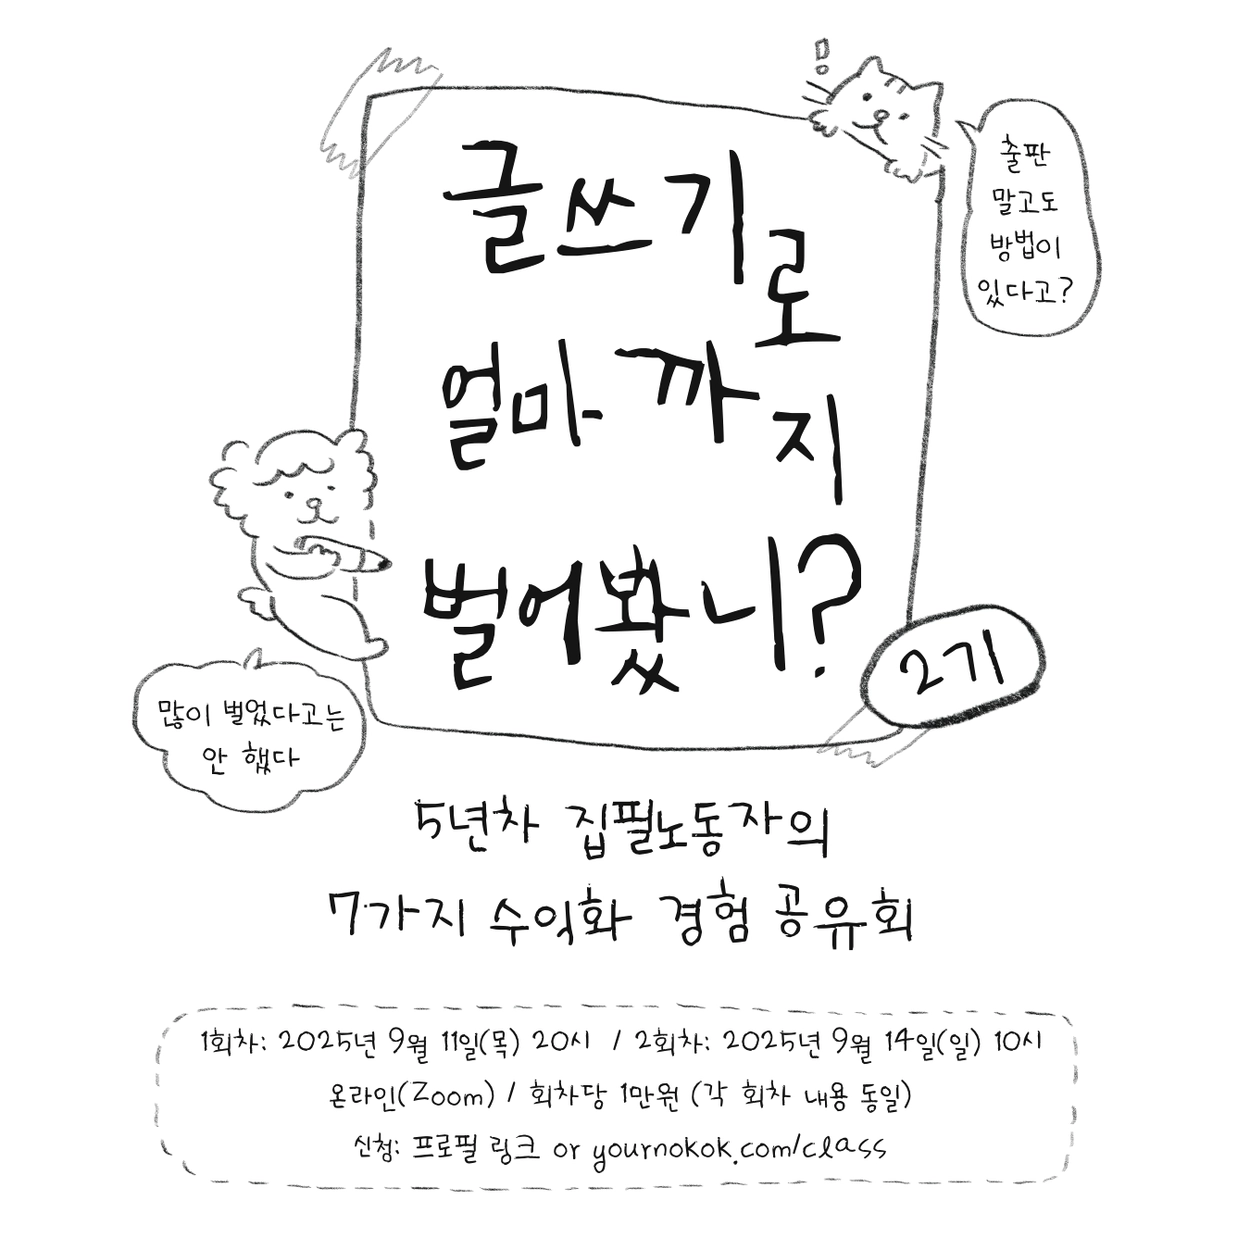 글쓰기로
얼마까지
벌어봤니?
2기
출판
말고도
방법이
있다고?
많이 벌었다고는
안 했다
5년차 집필노동자의
7가지 수익화 경험 공유회
1회차: 2025년 9월 11일(목) 20시 / 2회차: 2025년 9월 14일(일) 10시
온라인(Zoom) / 회차당 1만원 (각 회차 내용 동일)
신청: 프로필 링크 or yournokok.com/class